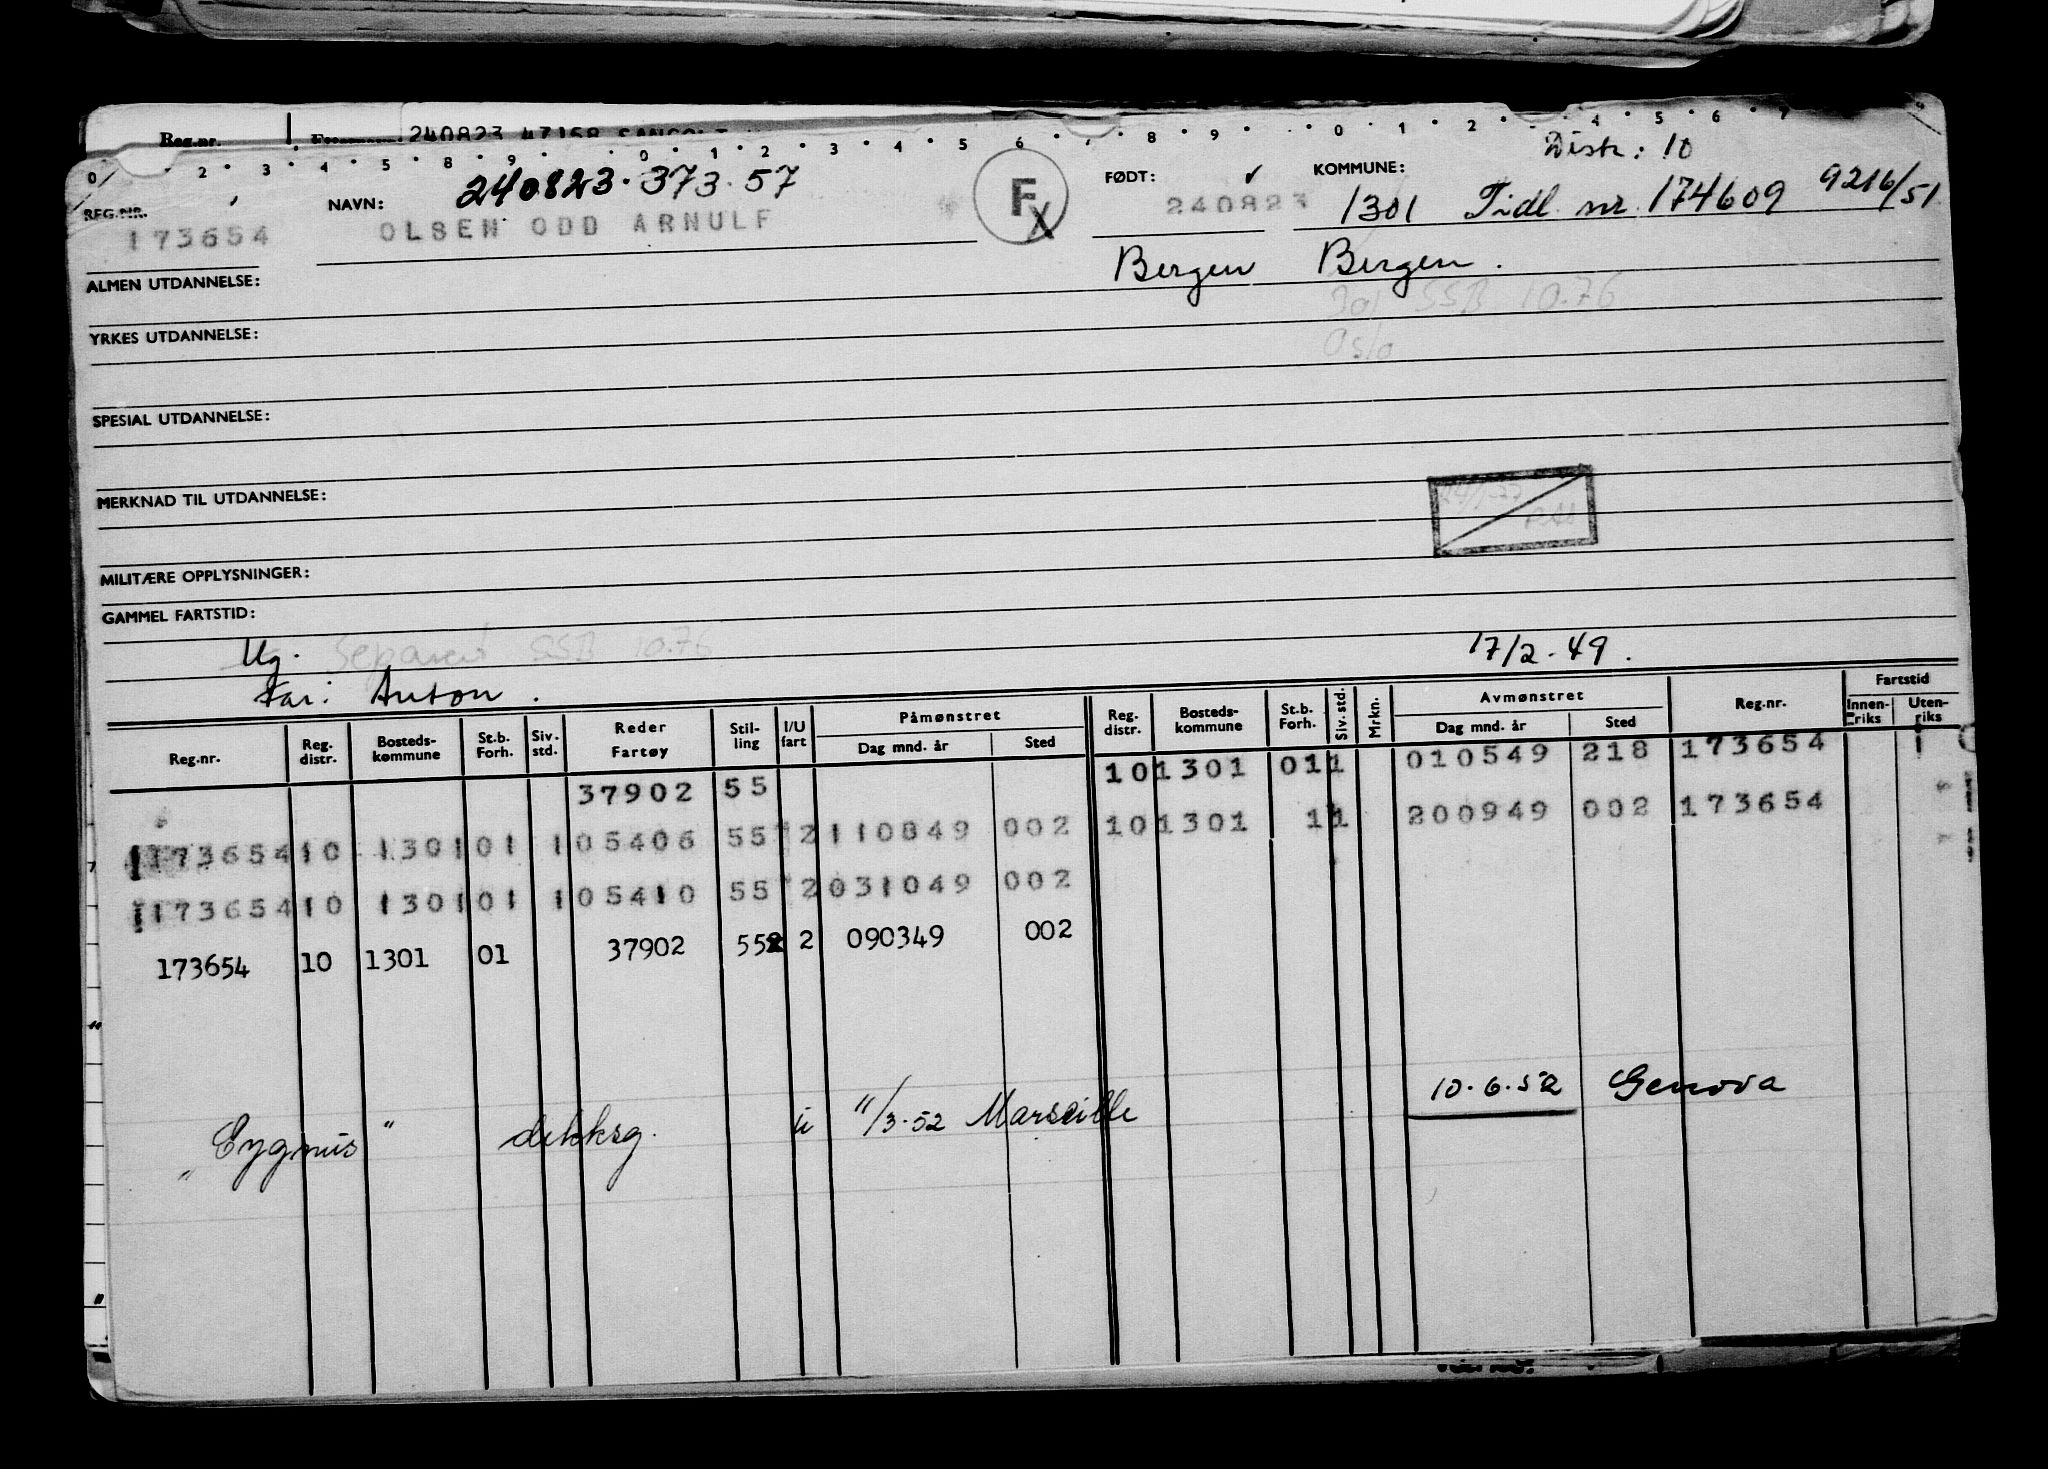 Reg.nr. 240823 47158
0 2 3 4 5 8 9 0 1 2 3 4 5 6 8 9 0 1 2 4 5 6 7
Distr: 10
REG.NR. NAVN: 240823.373.57 F X FØDT: KOMMUNE:
173654 OLSEN ODD ARNULF 240823 1301 Tidl nr. 174609 9216/51
Bergen Bergen.
ALMEN UTDANNELSE:
301 SSB 10.76
YRKES UTDANNELSE:
Oslo
SPESIAL UTDANNELSE:
MERKNAD TIL UTDANNELSE:
MILITÆRE OPPLYSNINGER:
GAMMEL FARTSTID:
Ug. Separert SSB 10.76 17/2-49.
Far: Anton.
Reg.nr. Reg. distr. Bosteds-kommune St.b. Forh. Siv. std. Reder Fartøy Stil-ling I/U fart Påmønstret Dag mnd. år Sted Reg. distr. Bosteds-kommune St.b. Forh. Siv. std. Mrkn. Avmønstret Dag mnd. år Sted Reg.nr. Fartstid Innen-riks Uten-riks
37902 55 10 1301 01 1 010549 218 173654
173654 10 1301 01 1 05406 55 2 110849 002 10 1301 1 1 200949 002 173654
173654 10 1301 01 1 05410 55 2 031049 002
173654 10 1301 01 37902 55 2 090349 002
"Cygnus" dekksg. u 11/3-52 Marseille 10.6.52 Genova